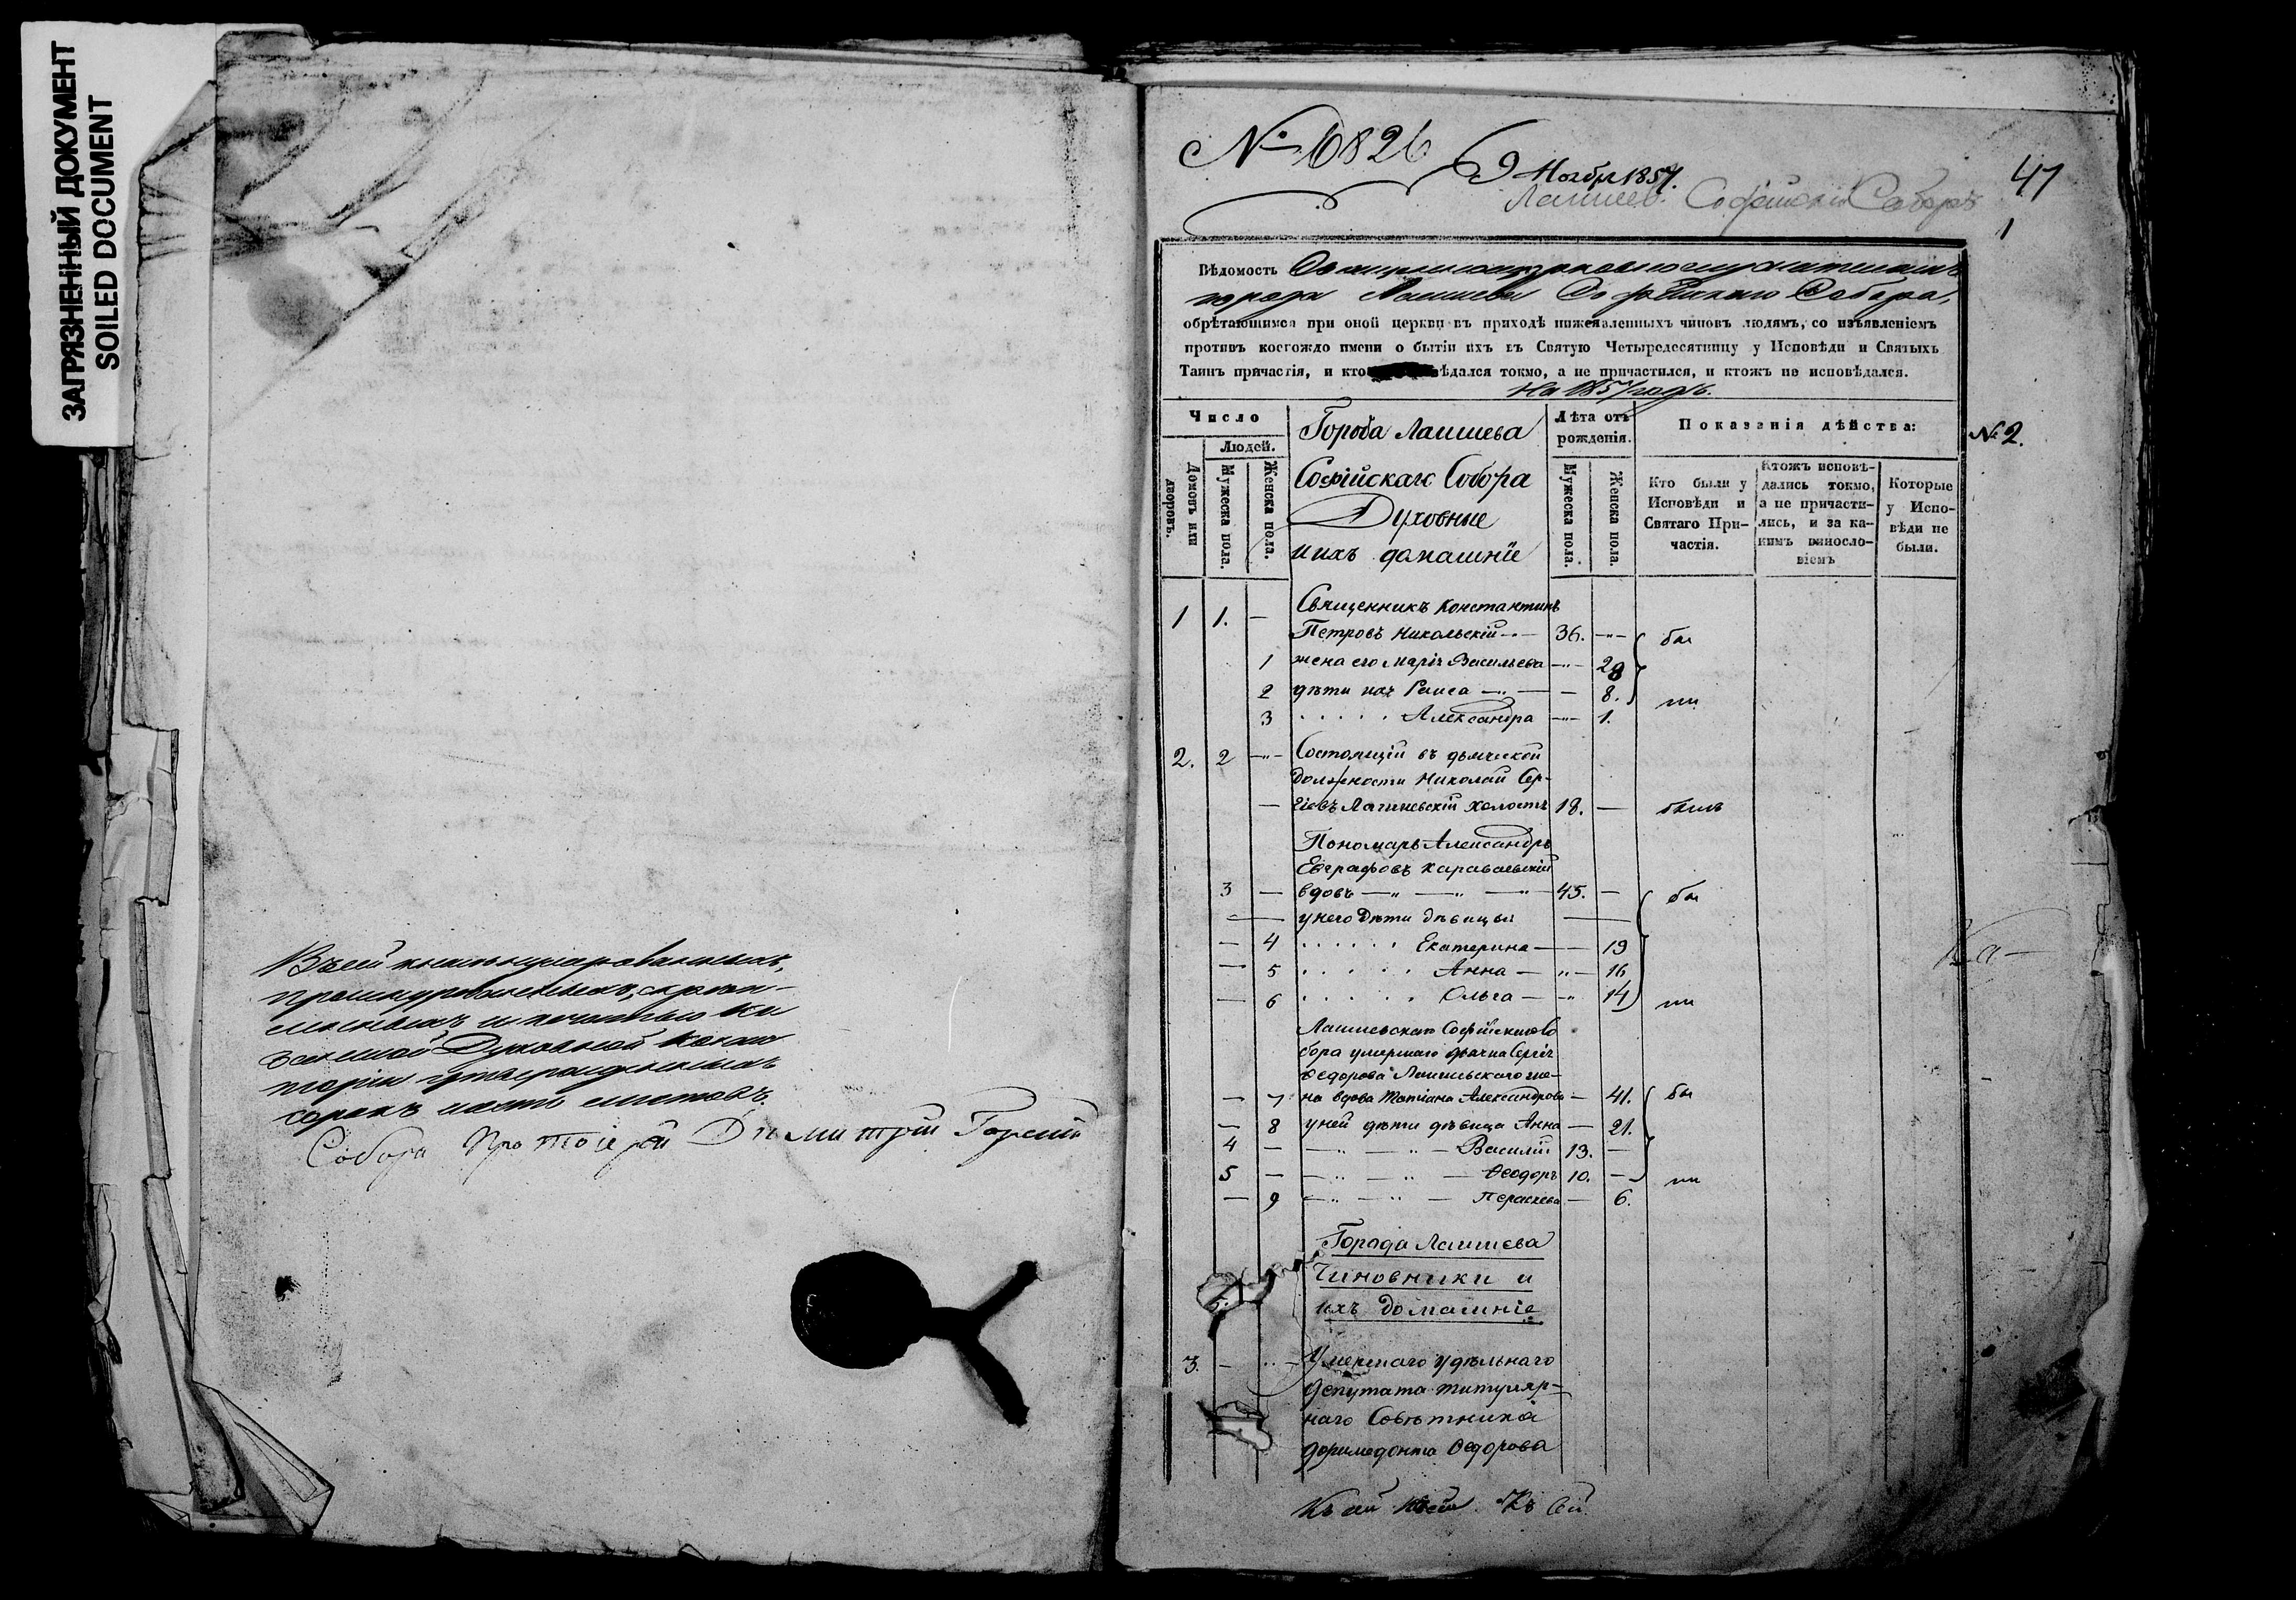 ЗАГРЯЗНЕННЫЙ ДОКУМЕНТ
SOILED DOCUMENT
Въ сей книгѣ нумерованныхъ,
прошнурованныхъ, скрѣп-
ленныхъ и печатью Ка
занской Духовной Конси
сторіи утвержденныхъ
сорокъ листовъ.
Собора Протоіерей Димитрій
№ 6826
9 Ноября 1857.
Лаишев. Софійскій Соборъ
47
1
Вѣдомость
города Лаишева Софійскаго Собора,
обрѣтающимся при оной церкви въ приходѣ нижеявленныхъ чиновъ людямъ, со изъявленіемъ
противъ коегождо имени о бытіи ихъ въ Святую Четыредесятницу у Исповѣди и Святыхъ
Таинъ причастія, и кто ѣдался токмо, а не причастился, и ктожъ не исповѣдался.
На 1857 годъ.
Число
Людей.
Домовъ или дворовъ.
Мужеска пола.
Женска пола.
Города Лаишева
Софійскаго Собора
Духовные
и ихъ домашніе
Лѣта отъ рожденія.
Мужеска пола.
Женска пола.
Показанія дѣйства:
Кто были у Исповѣди и Святаго Причастія.
Ктожъ исповѣдались токмо, а не причастились, и за какимъ винословіемъ
Которые у Исповѣди не были.
№ 2.
1 1. — Священникъ Константинъ
Петровъ Никольскій 36. бы
1 жена его Марія Васильева 28
2 дѣти ихъ Раиса 8. ли
3 Александра 1.
2. 2 Состоящій въ дьяческой
должности Николай Сер-
гіевъ Лаишевскій холостъ 18. — былъ
Пономарь Александръ
Евграфовъ Караваевскій
3 — вдовъ 45. — бы
у него дѣти дѣвицы
— 4 Екатерина 19
— 5 Анна 16
— 6 Ольга 14 ли
Лаишевскаго Софійскаго Со
бора умершаго дьячка Сергія
Ѳедорова Лаишевскаго же-
— 7 на вдова Татіана Александрова — 41. бы
— 8 у ней дѣти дѣвица Анна — 21.
4 — Василій 13. —
5 — Ѳеодоръ 10. — ли
— 9 Параскева — 6.
Города Лаишева
Чиновники и
ихъ домашніе
3. — Умершаго удѣльнаго
депутата титуляр-
наго Совѣтника
Доримедонта Ѳедорова